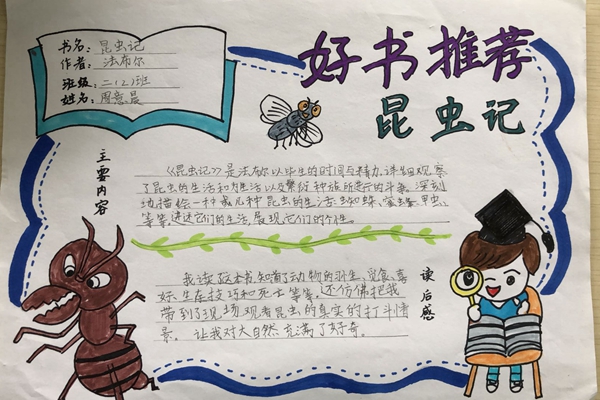 书名：昆虫记
作者：法布尔
班级：二（2）班
姓名：周意晨
好书推荐
昆虫记
主要内容
《昆虫记》是法布尔以毕生的时间与精力，详细观察
了昆虫的生活和为生活以及繁衍种族所进行的斗争。深刻
地描绘一种或几种昆虫的生活：蜘蛛、蜜蜂、甲虫
等等，讲述它们的生活，展现它们的个性。
读后感
我读这本书，知道了动物的习性、觅食、喜
好、生存技巧和死亡等等，还仿佛把我
带到了现场观看昆虫的真实的打斗情
景。让我对大自然充满了好奇。